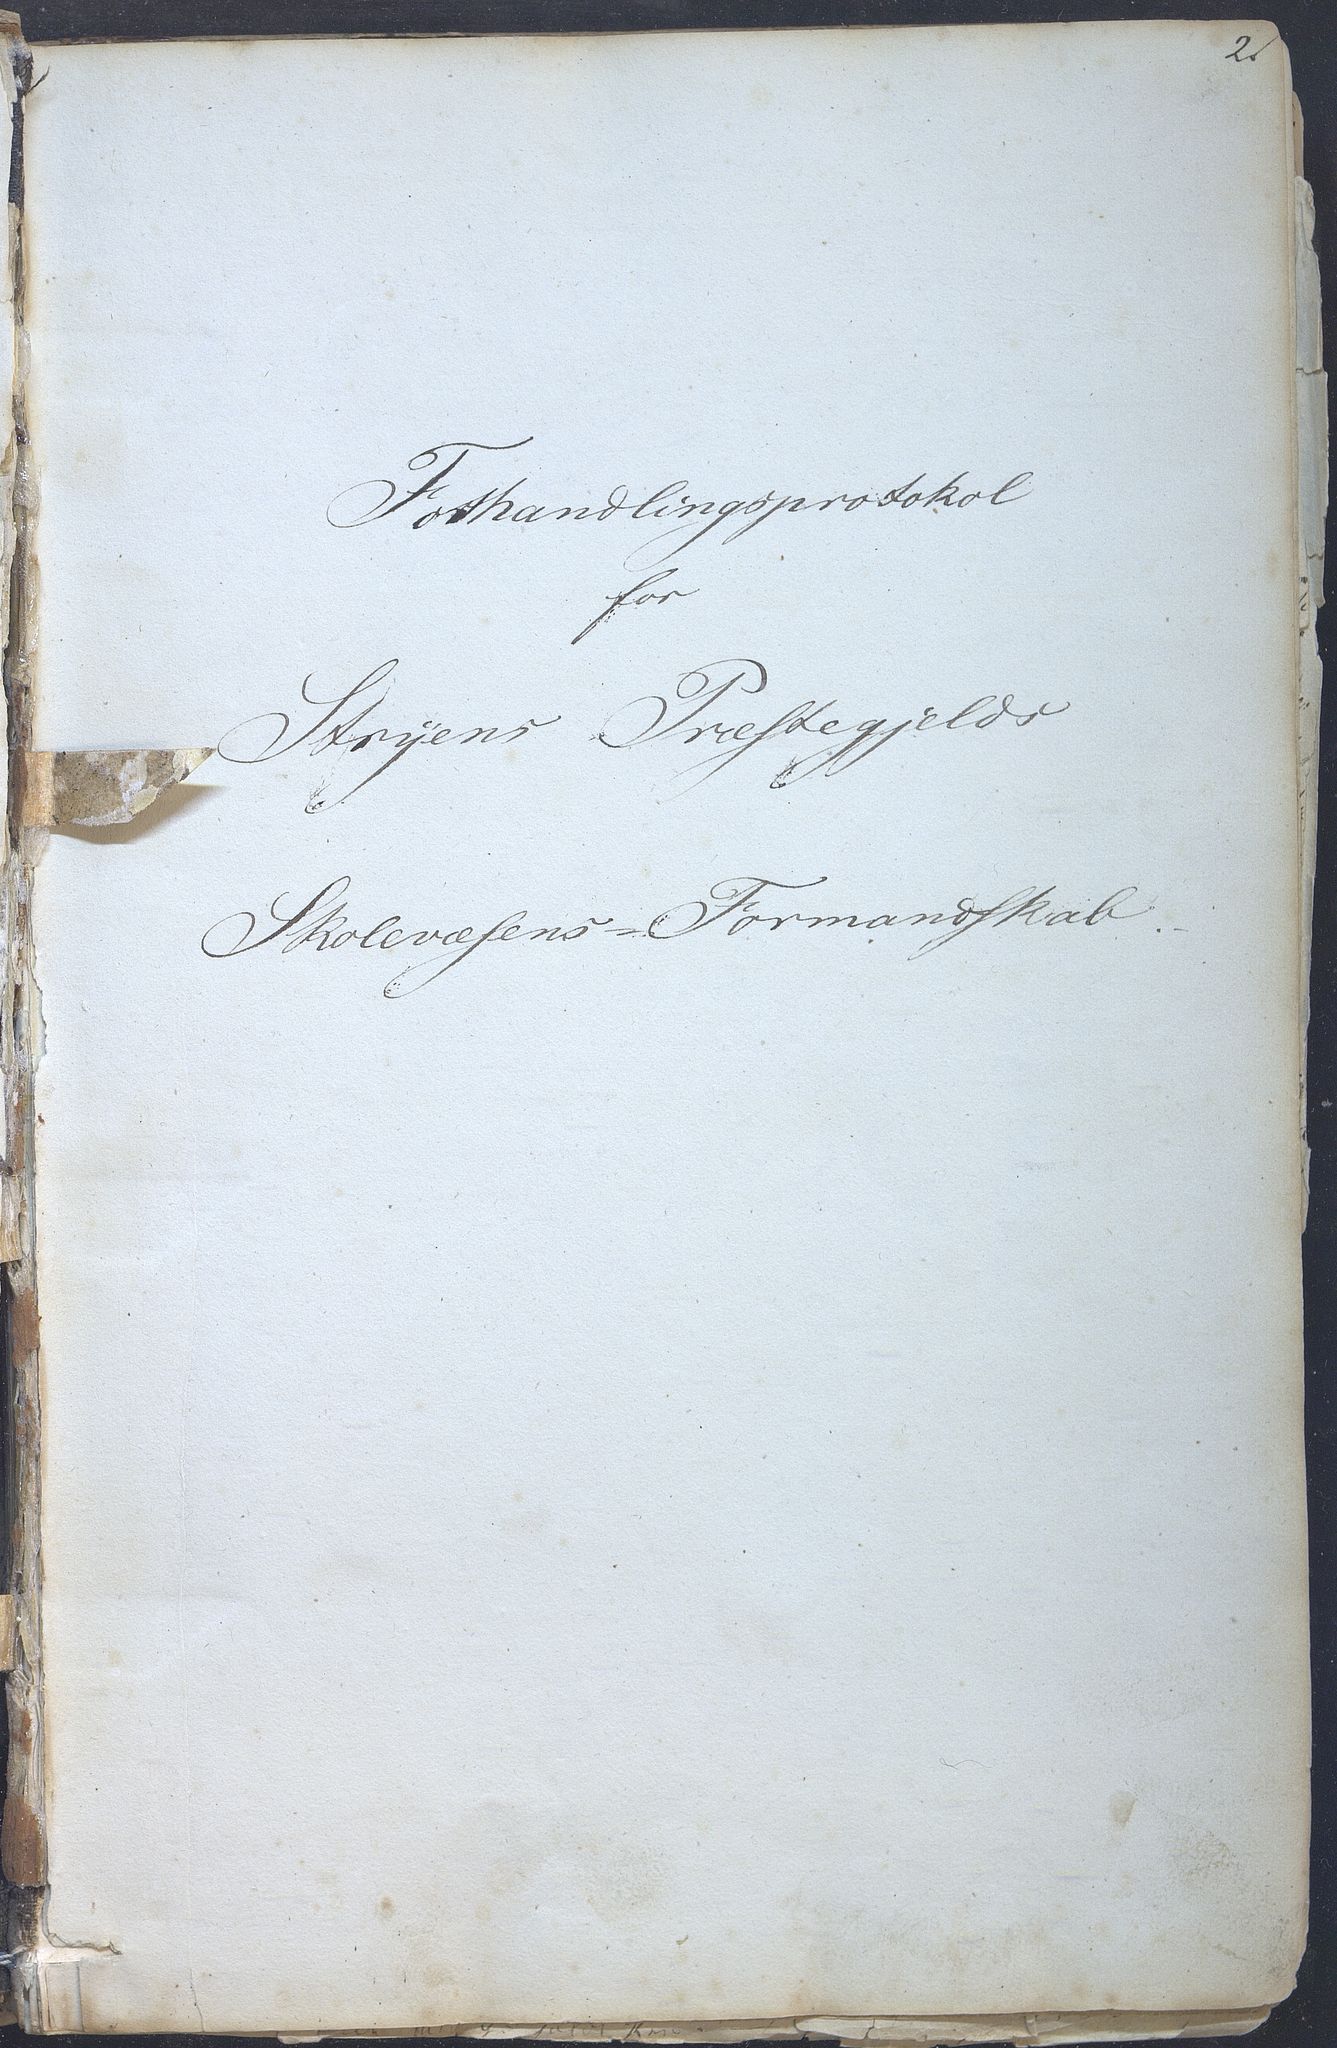 2.
Forhandlingsprotokol
for
Stryens Præstegjelds
Skolevæsens=Formandskab.